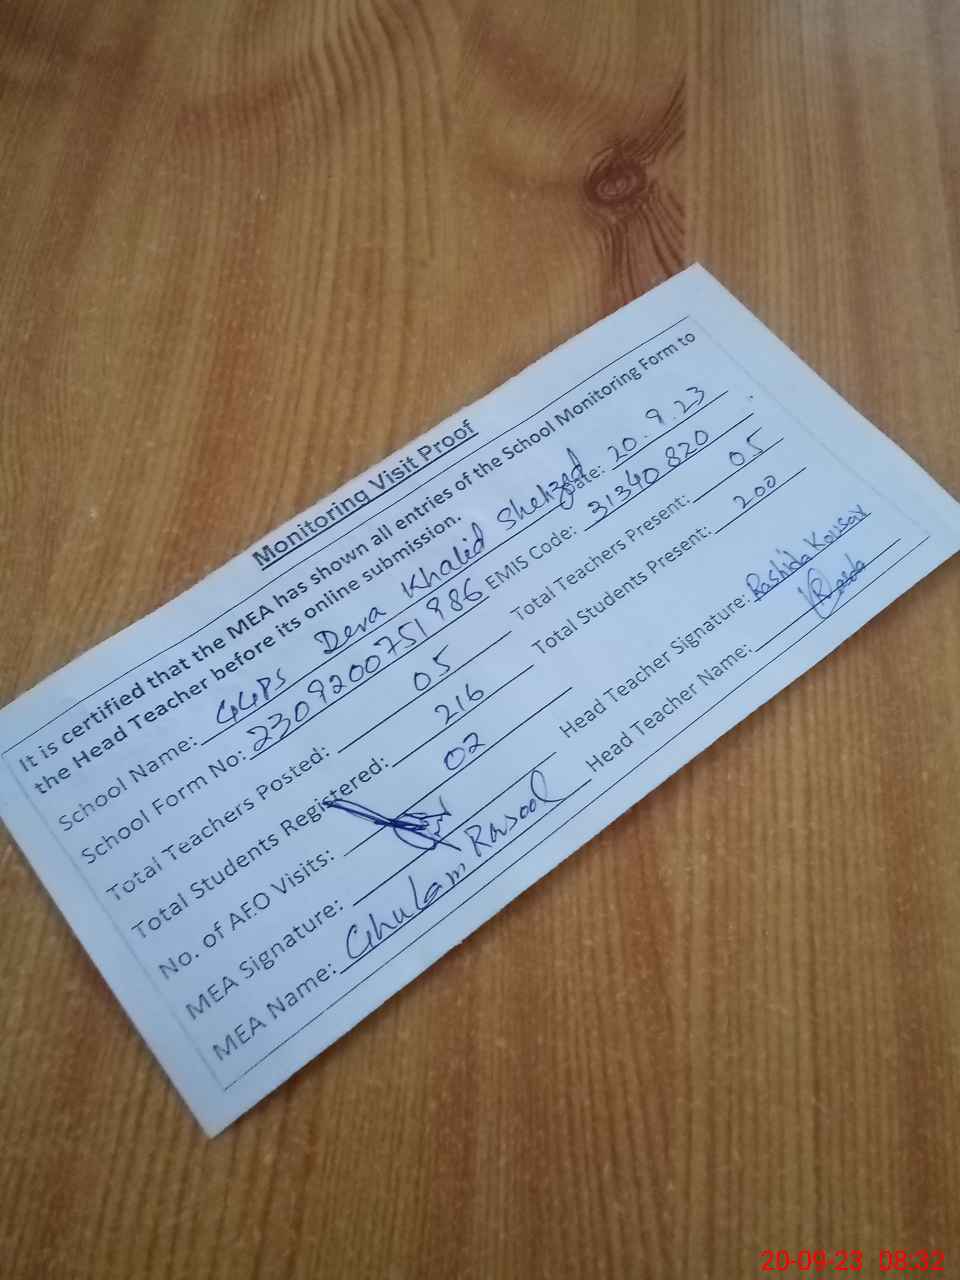 Monitoring Visit Proof
It is certified that the MEA has shown all entries of the School Monitoring Form to
the Head Teacher before its online submission.
School Name: GGPS Dera Khalid Shehzad Date: 20.9.23
School Form No: 2309200751986 EMIS Code: 31340820
Total Teachers Posted: 05 Total Teachers Present: 05
Total Students Registered: 216 Total Students Present: 200
No. of AEO Visits: 02
MEA Signature: Head Teacher Signature: Rashida Kousar
MEA Name: Ghulam Rasool Head Teacher Name:
20-09-23 08:32